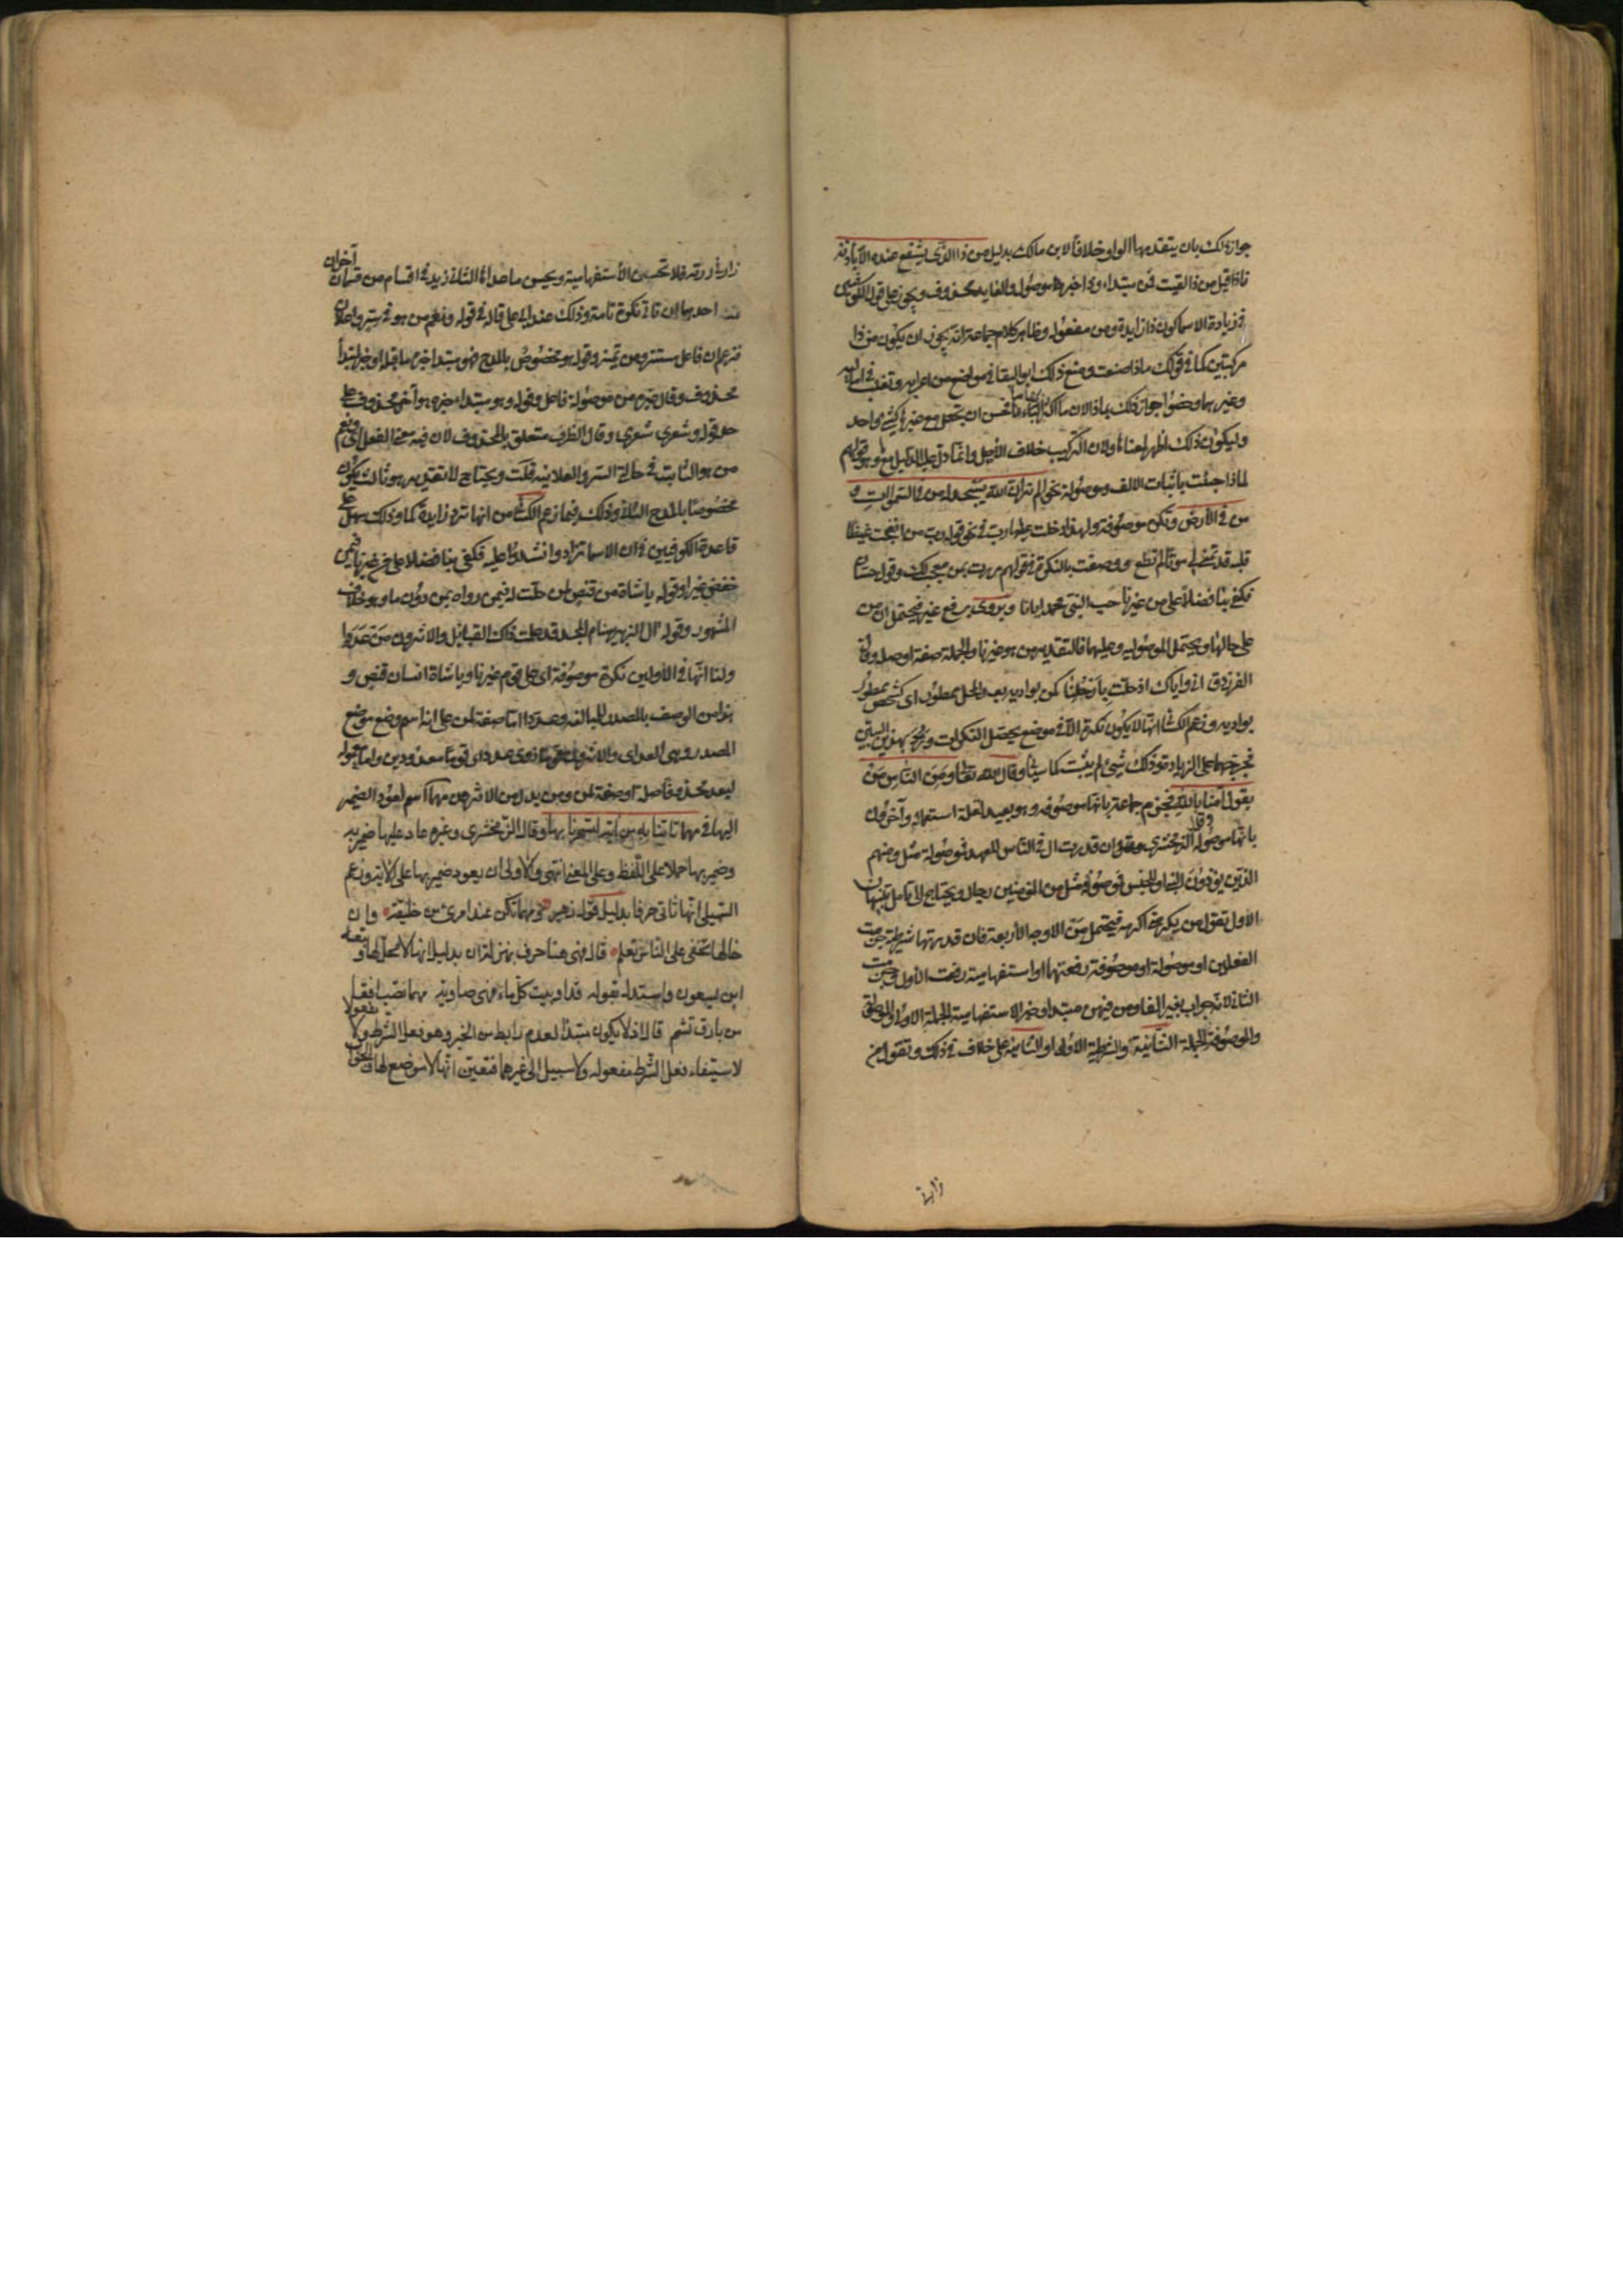 جواز ذلك بان يتقدمهما الواو خلافا لابن مالك بدليل من ذا الذى يشفع عنده الا باذنه
فاذا قيل من ذا لقيت فمن مبتدا وذا خبرها موصول والعايد محذوف ويجوز على قول الكوفيين
فى زيادة الاسما كون ذا زايدة ومن مفعول وظاهر كلام جماعة انه يجوز ان يكون من ذا
مركبتين كما فى قولك ماذا صنعت ومنع ذلك ابو البقا فى مواضع من اعرابه وثعلب فى اماليه
وغيرهما وخصوا جواز ذلك بماذا لان ما اكثر ابهاما فحسن ان تجعل مع غيرها كشىء واحد
وليكون ذلك اظهر لمعناها ولان التركيب خلاف الاصل وانما دل عليه الدليل مع ما وهو قولهم
لماذا جئت باثبات الالف وموصولة نحو الم تر ان الله يسجد له من فى السموات و
من فى الارض ونكرة موصوفة ولهذا دخلت عليها رب فى نحو قوله رب من انضجت غيظا
قلبه قد تمنى لى موتا لم يطع ووصفت بالنكرة فى قولهم مررت بمن معجب لك وقول حسان
فكفى بنا فضلا على من غيرنا حب النبى محمد ايانا ويروى برفع غير فيحتمل ان من
على حالها ويحتمل الموصولية وعليهما فالتقدير من هو غيرنا والجملة صفة او صلة وقال
الفرزدق انى واياك اذ حلت بارحلنا كمن بواديه بعد المحل ممطور اى كشخص ممطور
بواديه وزعم الكسائى انها لا يكون نكرة الا فى موضع يختص النكرات ورد بهذين البيتين
فخرجهما على الزيادة وذلك شىء لم يثبت كما سيأتى وقال الله تعالى ومن الناس من
يقول امنا بالله فجزم جماعة بانها موصوفة وهو بعيد لقلة استعمالها وآخرون
بانها موصولة وقال الزمخشرى ان قدرت ال فى الناس للعهد فموصولة مثل ومنهم
الذين يؤذون النبى او للجنس فموصوفة مثل من المؤمنين رجال ويحتاج الى تامل تنبيهان
الاول تقول من يكرمنى اكرمه فيحتمل من الاوجه الاربعة فان قدرتها شرطية جزمت
الفعلين او موصولة او موصوفة رفعتهما او استفهامية رفعت الاول وجزمت
الثانى لانه جواب بغير الفا ومن فيهن مبتدا وخبر الاستفهامية الجملة الاولى والموصولة
والموصوفة الجملة الثانية والشرطية الاولى او الثانية على خلاف فى ذلك وتقول من
زارنى
زارنى زرته فلا تحسن الاستفهامية ويحسن ما عداها الثانى زيد فى اقسام من قسمان آخران
احدهما ان تاتى نكرة تامة وذلك عند ابى على قاله فى قوله ونعم من هو فى سر واعلان
فزعم ان فاعل مستتر ومن تمييز وقوله هو مخصوص بالمدح فهو مبتدا خبره ما قبله او خبر لمبتدا
محذوف وقال غيره من موصولة فاعل وقوله هو مبتدا خبره هو آخر محذوف على
حد قوله وشعرى شعرى وقال الظرف متعلق بالمحذوف لان فيه معنى الفعل اى ونعم
من هو الثابت فى حالة السر والعلانية قلت ويحتاج الى تقدير هو ثالث يكون
مخصوصا بالمدح الثانى وذلك فيما زعم الكسائى من انها ترد زايدة كما وذلك سهل على
قاعدة الكوفيين فى ان الاسما تزاد وانشد عليه فكفى بنا فضلا على من غيرنا فيمن
خفض غيرا وقوله ياشاة من قنص لمن حلت له فيمن رواه بمن دون ما وهو خلاف
المشهور وقوله ال الزبير سنام المجد قد علمت ذاك القبايل والاثرون من عددا
ولنا انها فى الاولين نكرة موصوفة اى على قوم غيرنا وياشاة انسان قنص و
هذا من الوصف بالمصدر للمبالغة وعددا اما صفة لمن على انه اسم وضع موضع
المصدر وهو العد اى والاثرون قوما ذوى عدد اى قوما معدودين واما معمول
ليعد محذوفا صلة او صفة لمن ومن بدل من الاثرون مهما اسم لعود الضمير
اليها فى مهما تاتنا به من اية لتسحرنا بها وقال الزمخشرى وغيره عاد عليها ضمير به
وضمير بها حملا على اللفظ وعلى المعنى انتهى والاولى ان يعود ضمير بها على الاية وزعم
السهيلى انها تاتى حرفا بدليل قوله زهير ومهما تكن عند امرئ من خليقة وان
خالها تخفى على الناس تعلم قال فهى هنا حرف بمنزلة ان بدليل انها لا محل لها وتبعه
ابن يسعون واستدل بقوله قد اوبيت كل ماء فهى صاوية مهما تصب افقا
من بارق تشم قال اذ لا يكون مبتدا لعدم رابط من الخبر وهو فعل الشرط ولا مفعولا
لاستيفاء فعل الشرط مفعوله ولا سبيل الى غيرهما فتعين انها لا موضع لها والجواب